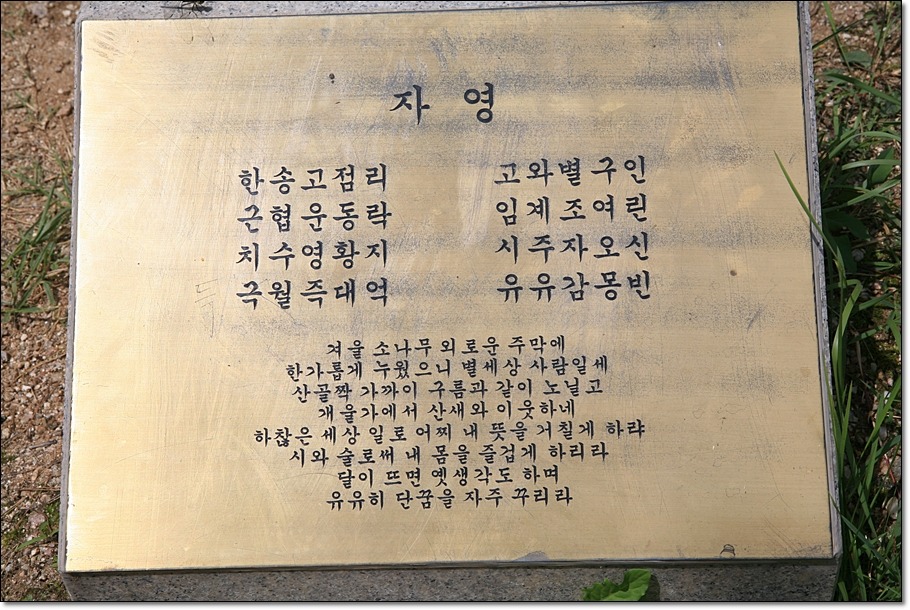 자 영
한송고점리 고와별구인
근협운동락 임계조여린
치수영황지 시주자오신
극월즉대억 유유감몽빈
겨울 소나무 외로운 주막에
한가롭게 누웠으니 별세상 사람일세
산골짝 가까이 구름과 같이 노닐고
개울가에서 산새와 이웃하네
하찮은 세상 일로 어찌 내 뜻을 거칠게 하랴
시와 술로써 내 몸을 즐겁게 하리라
달이 뜨면 옛생각도 하며
유유히 단꿈을 자주 꾸리라